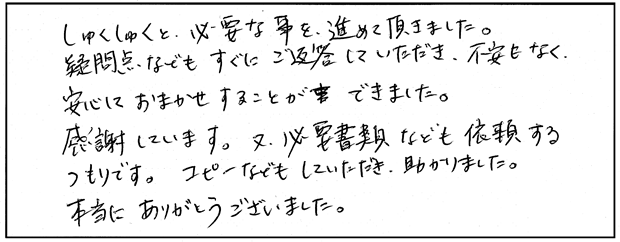 しゅくしゅくと、必要な事を、進めて頂きました。
疑問点などもすぐにご返答していただき、不安もなく、
安心しておまかせすることができました。
感謝しています。又、必要書類なども依頼する
つもりです。コピーなどもしていただき、助かりました。
本当にありがとうございました。